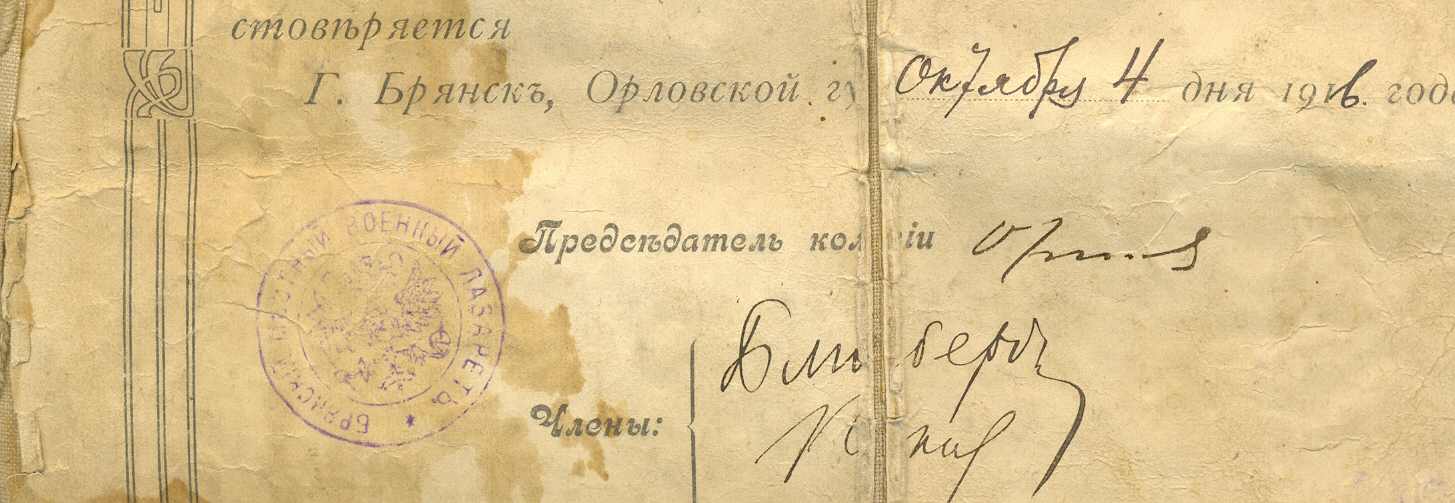 стовѣряется
Г. Брянскъ, Орловской гу Октября 4 дня 1916 года
БРЯНСКІЙ МѢСТНЫЙ ВОЕННЫЙ ЛАЗАРЕТЪ
Предсѣдатель ком іи
Члены: